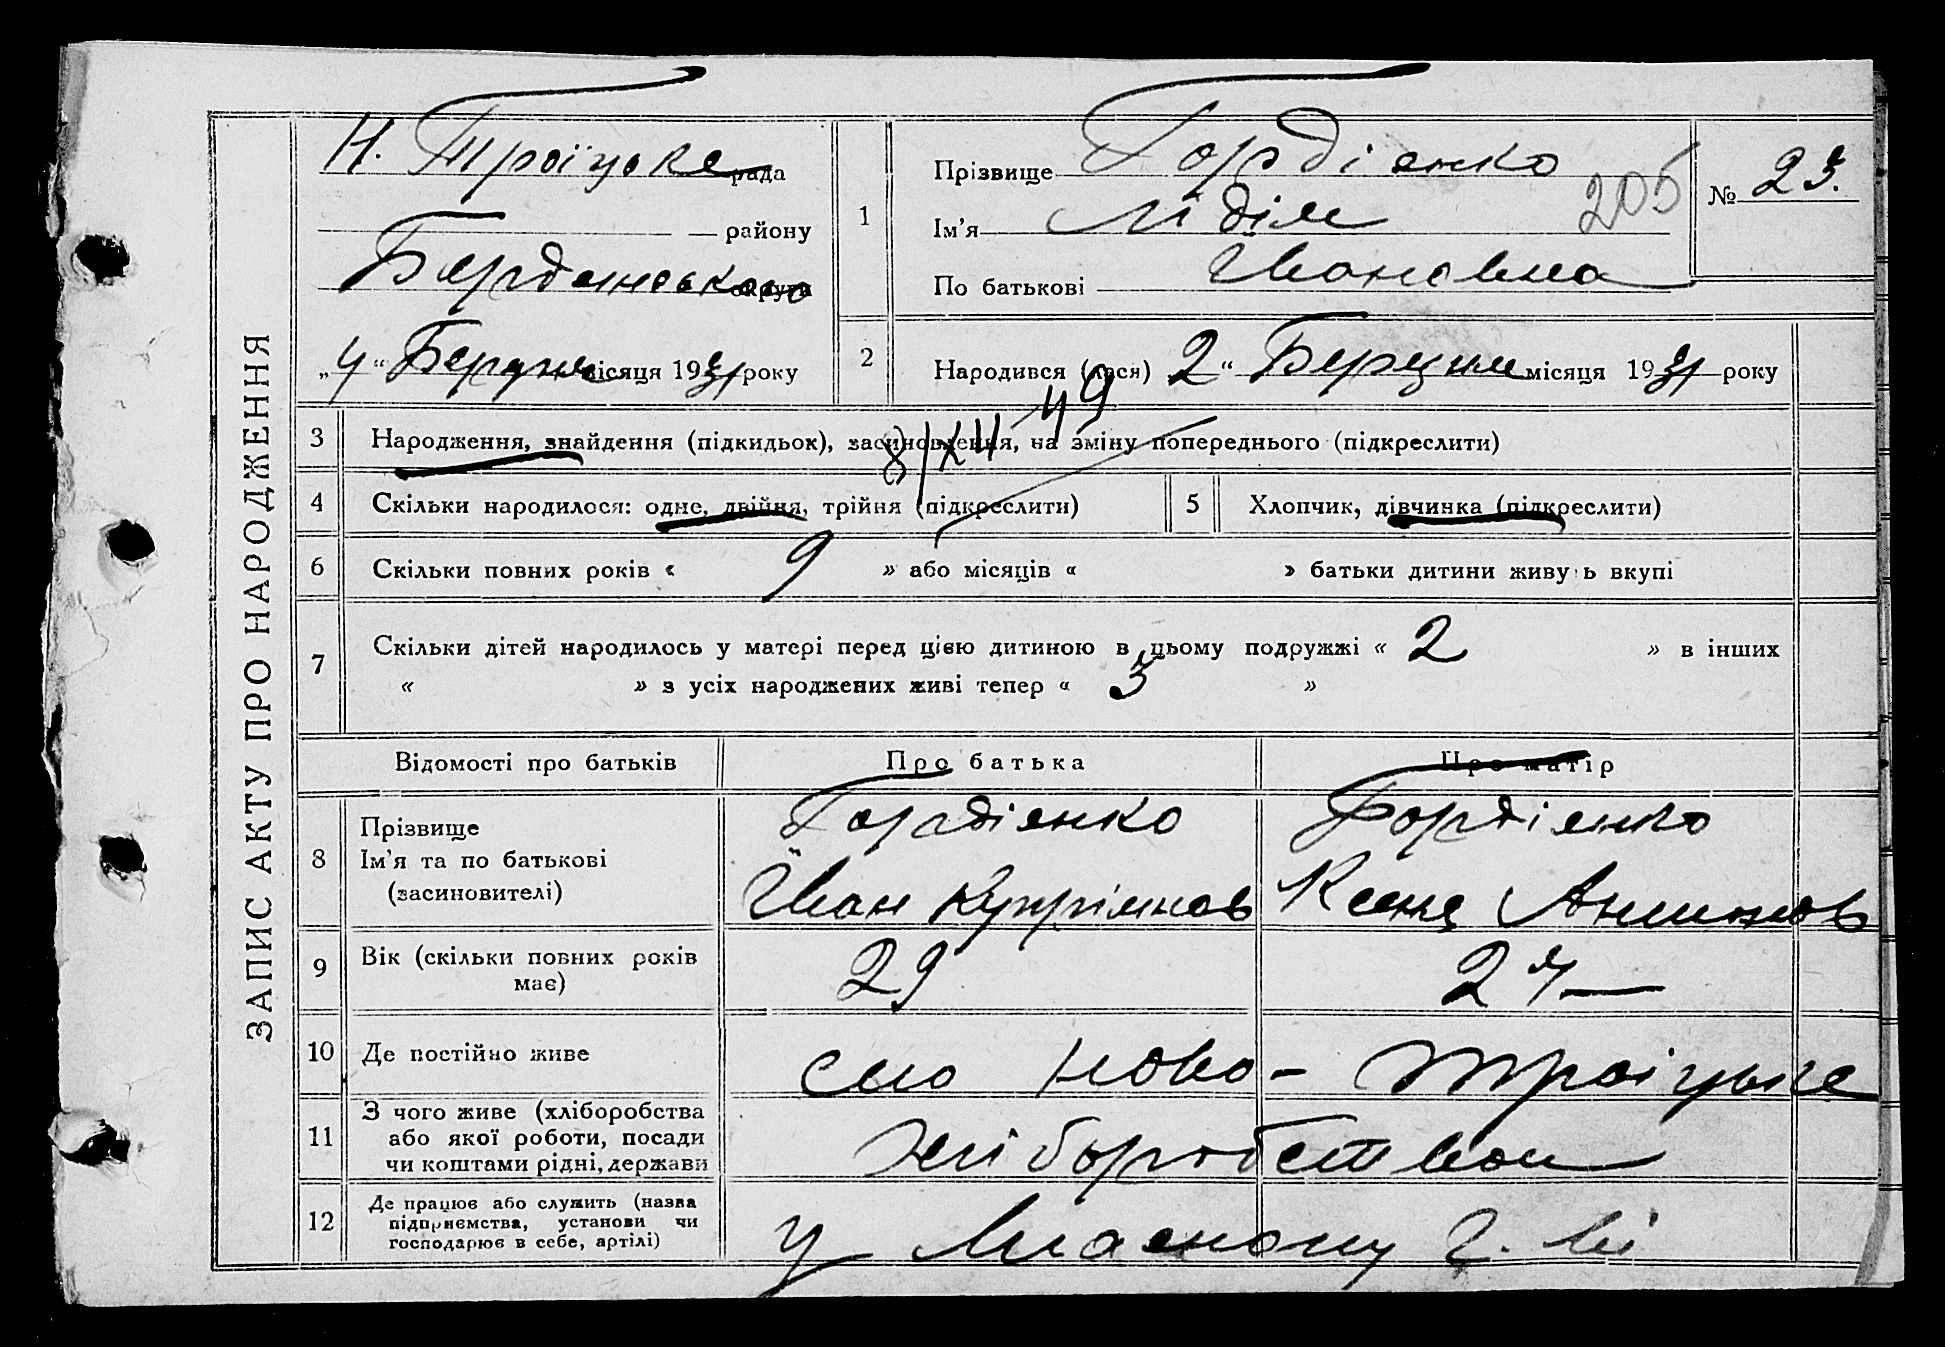 ЗАПИС АКТУ ПРО НАРОДЖЕННЯ
Н. Троїцьке рада
району
Бердянського округи
„4“ Березня місяця 1931 року
1
Прізвище Гордієнко
Ім'я Лідія
По батькові Івановна
205
№ 23.
2
Народився (лася) 2 “ Березня місяця 1931 року
3 Народження, знайдення (підкидьок), засиновлення, на зміну попереднього (підкреслити)
8/XII 49
4 Скільки народилося: одне, двійня, трійня (підкреслити)
5 Хлопчик, дівчинка (підкреслити)
6 Скільки повних років « 9 » або місяців « » батьки дитини живуть вкупі
7 Скільки дітей народилось у матері перед цією дитиною в цьому подружжі « 2 » в інших
« » з усіх народжених живі тепер « 3 »
Відомості про батьків
Про батька
Про матір
8 Прізвище
Ім'я та по батькові
(засиновителі)
Гордієнко
Іван
Гордієнко
9 Вік (скільки повних років
має)
29
27
10 Де постійно живе
село Ново-Троїцьке
11 З чого живе (хліборобства
або якої роботи, посади
чи коштами рідні, держави
хліборобством
12 Де працює або служить (назва
підприємства, установи чи
господарює в себе, артілі)
у власному г.